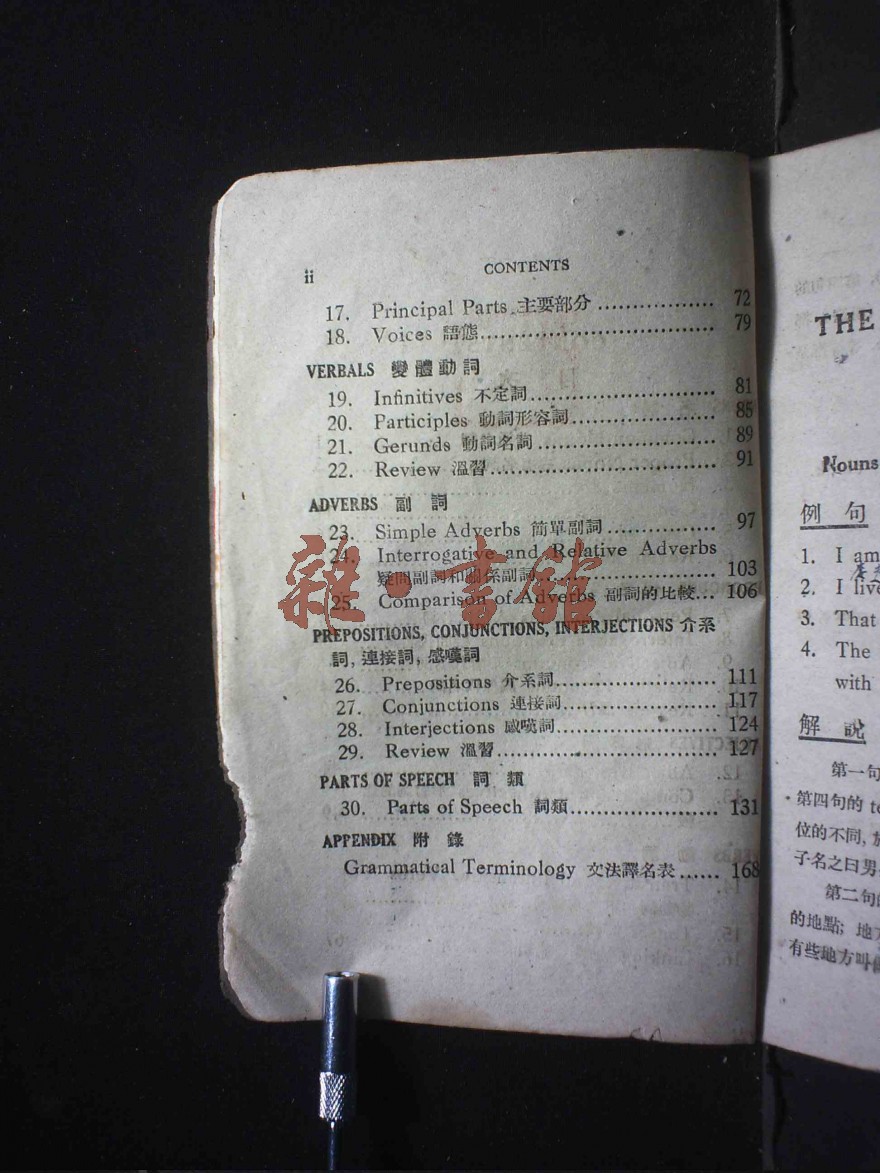 ii
CONTENTS
17. Principal Parts 主要部分 ................ 72
18. Voices 語態................................... 79
VERBALS 變體動詞
19. Infinitives 不定詞............................ 81
20. Participles 動詞形容詞...................... 85
21. Gerunds 動詞名詞........................... 89
22. Review 溫習.................................. 91
ADVERBS 副詞
23. Simple Adverbs 簡單副詞................ 97
24. Interrogative and Relative Adverbs
疑問副詞和關係副詞........................ 103
25. Comparison of Adverbs 副詞的比較... 106
PREPOSITIONS, CONJUNCTIONS, INTERJECTIONS 介系
詞, 連接詞, 感嘆詞
26. Prepositions 介系詞........................ 111
27. Conjunctions 連接詞....................... 117
28. Interjections 感嘆詞........................ 124
29. Review 溫習................................. 127
PARTS OF SPEECH 詞類
30. Parts of Speech 詞類...................... 131
APPENDIX 附錄
Grammatical Terminology 文法譯名表...... 168
雜·書館
THE
Nouns
例句
1. I am
2. I live
3. That
4. The
with
解說
第一句
第四句的
位的不同,
子名之曰男
第二句
的地點; 地
有些地方叫